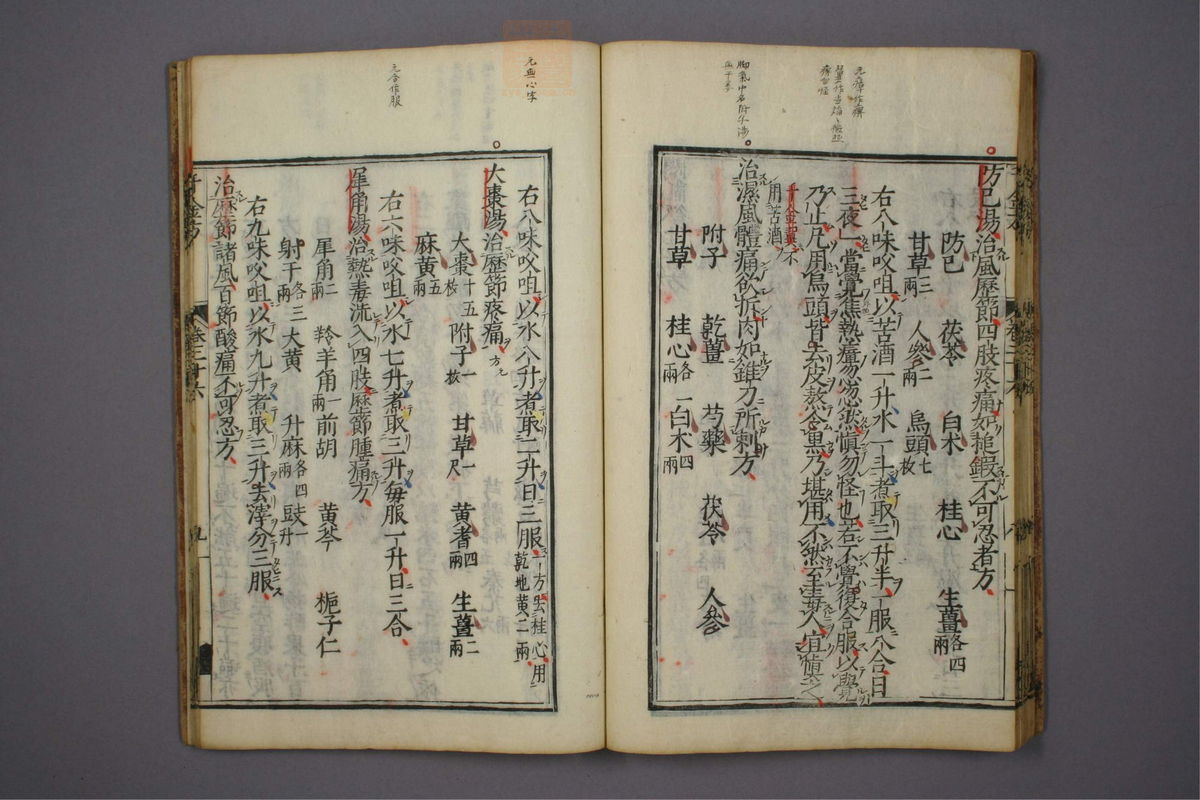 防已湯治風歷節四肢疼痛如搥鍛不可忍者方
防已 茯苓 白术 桂心 生薑各四兩
甘草三兩 人參二兩 烏頭七枚
右八味㕮咀以苦酒一升水一斗煮取三升半一服八合日
三夜一當覺焦熱痹忽忽然慎勿怪也若不覺復合服以覺
乃止凡用烏頭皆去皮熬令黑乃堪用不然至毒人宜慎之
千金翼不
用苦酒
治濕風體痛欲折肉如錐刀所刺方
附子 乾薑 芍藥 茯苓 人參
甘草 桂心各三兩 白术四兩
右八味㕮咀以水八升煮取二升日三服一方去桂心用
乾地黃二兩
大棗湯治歷節疼痛方
大棗十五枚 附子一枚 甘草一尺 黃耆四兩 生薑二兩
麻黃五兩
右六味㕮咀以水七升煮取三升每服一升日三合
犀角湯治熱毒流入四肢歷節腫痛方
犀角二兩 羚羊角一兩 前胡 黃芩 梔子仁
射干各三兩 大黃 升麻各四兩 豉一升
右九味㕮咀以水九升煮取三升去滓分三服
治歷節諸風百節酸痛不可忍方
千金方
卷二十六
九
元無心字
元合作服